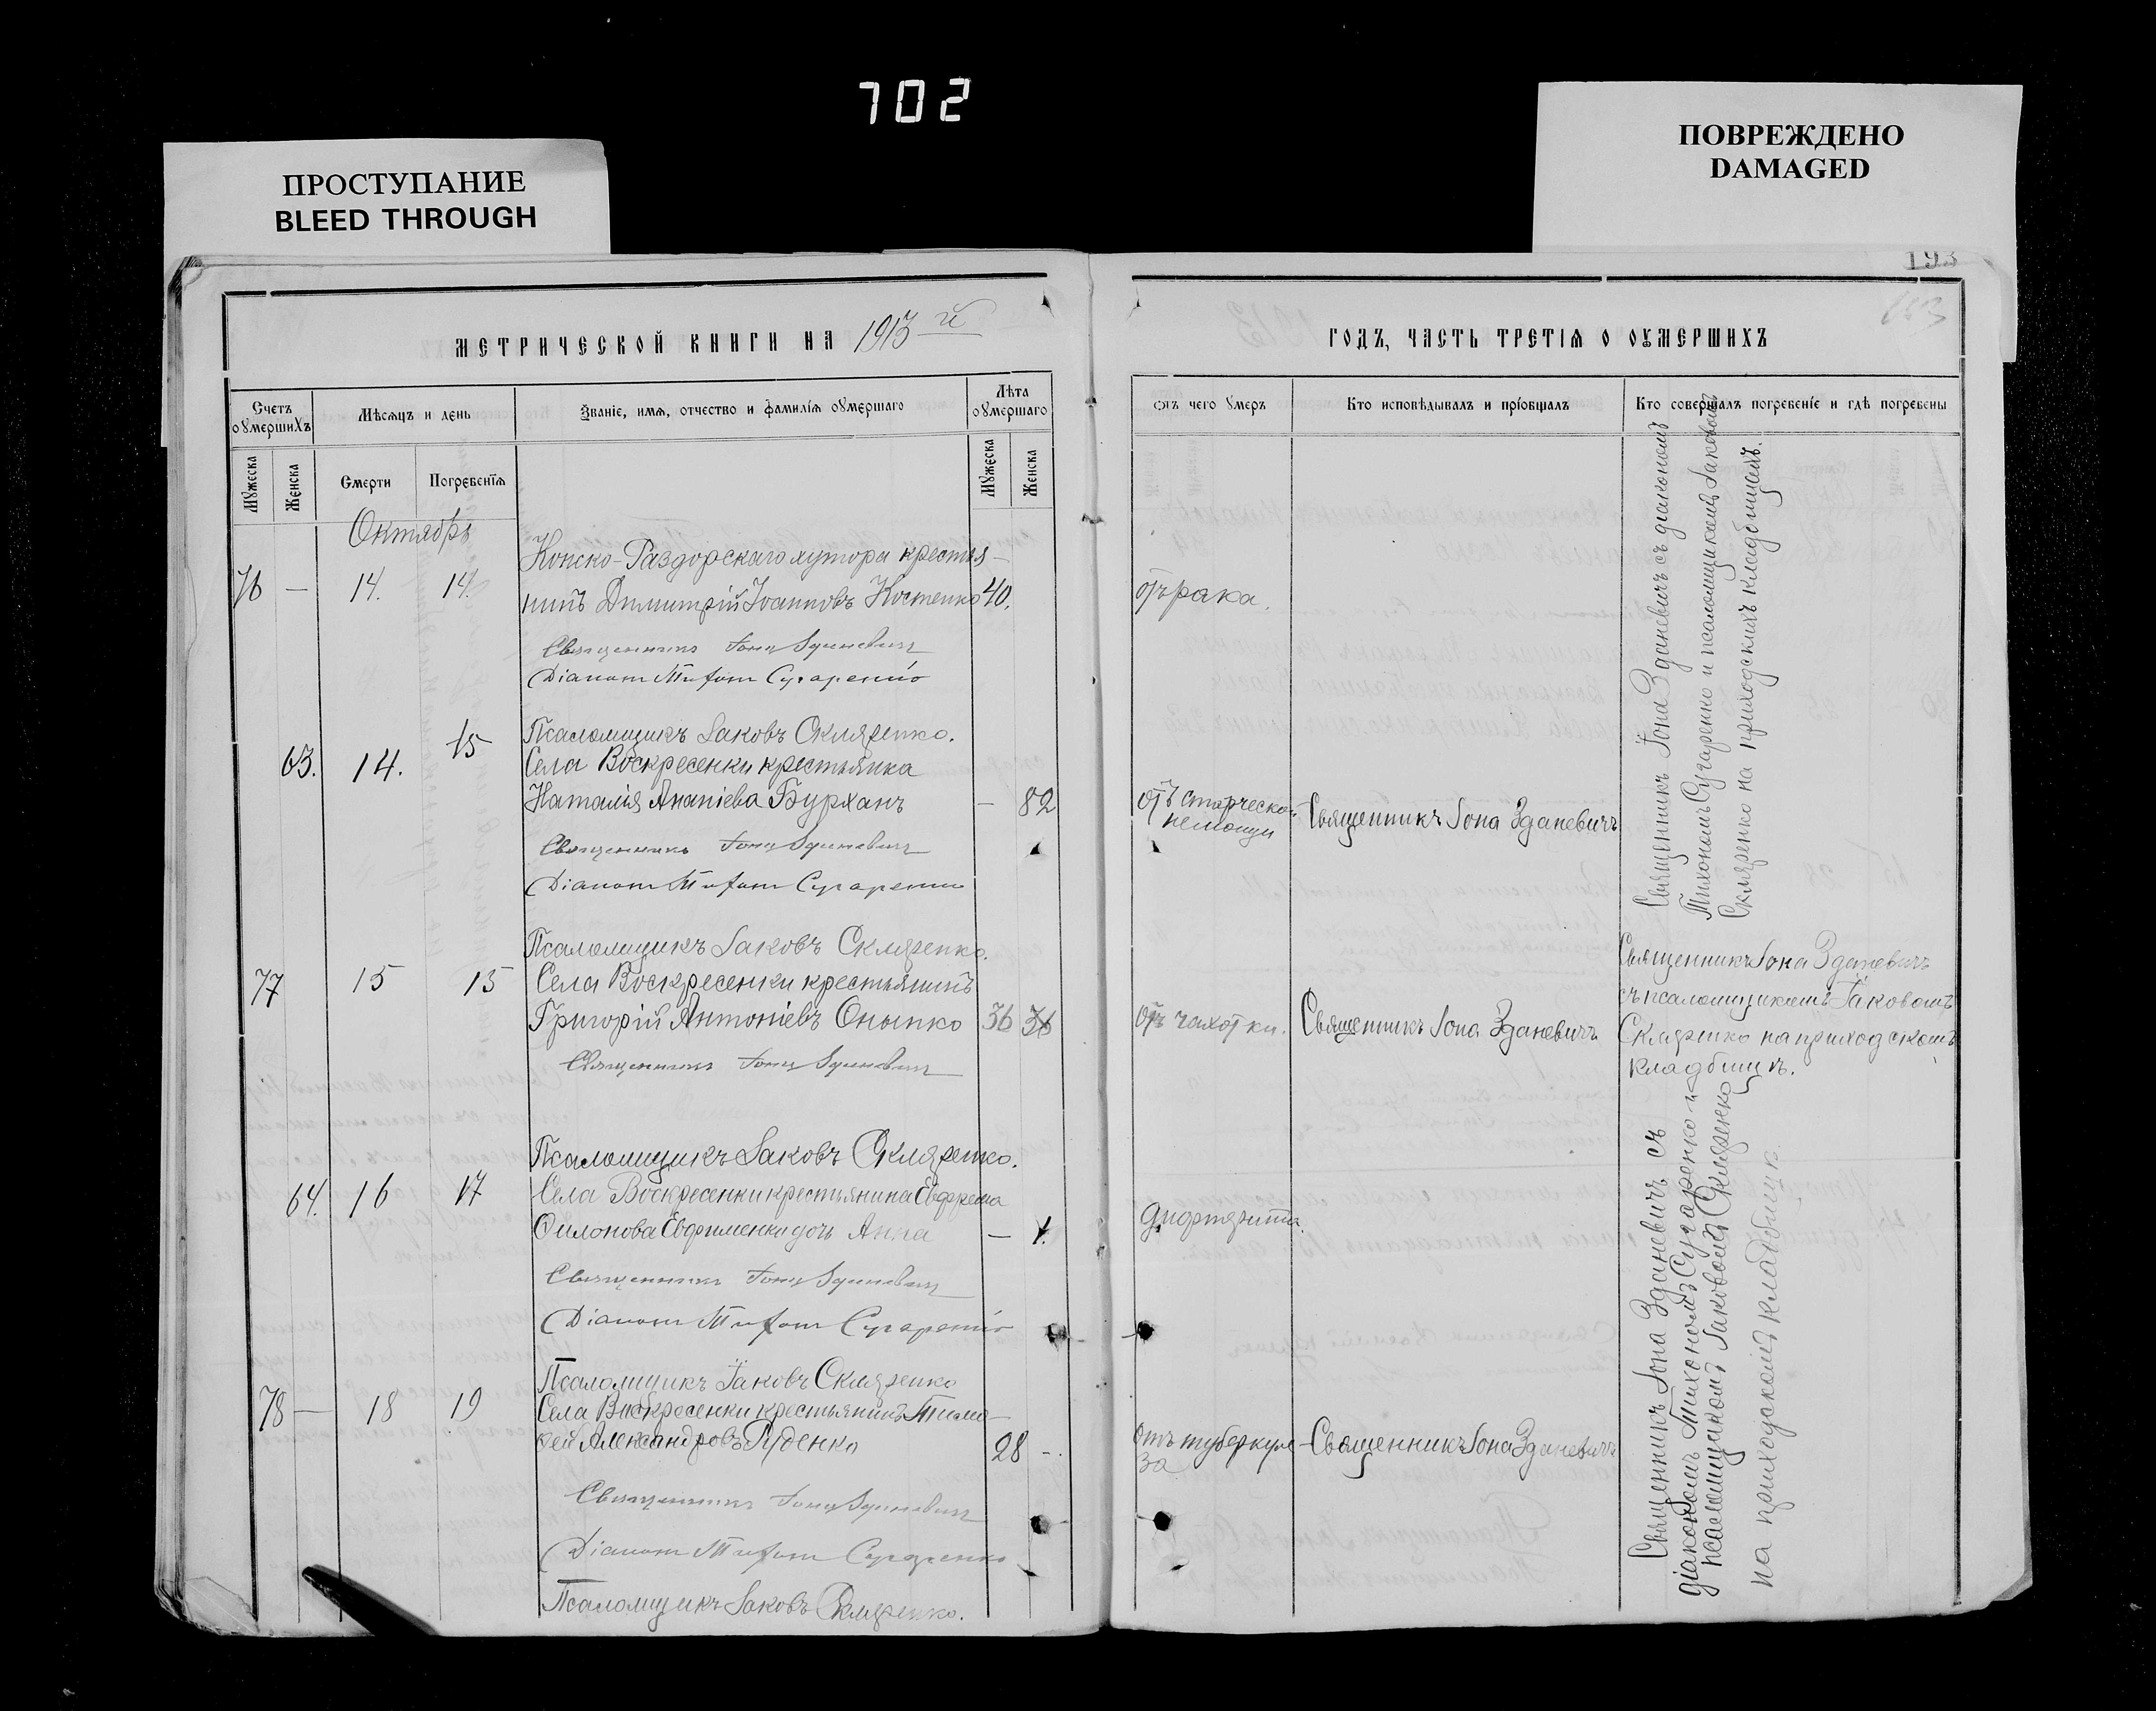 702
ПРОСТУПАНИЕ
BLEED THROUGH
ПОВРЕЖДЕНО
DAMAGED
193
МЕТРИЧЕСКОЙ КНИГИ НА 1913 й
Счетъ оумершихъ
Мѣсяцъ и день
Званіе, имя, отчество и фамилія оумершаго
Лѣта оумершаго
Мужеска
Женска
Смерти
Погребенія
Мужеска
Женска
Октябрь
76 — 14. 14. Конско-Раздорскаго хутора крестья-
нинъ Димитрій Іоанновъ Костенко 40.
Священникъ Іона Зданевичъ
Діаконъ Тихонъ Сугаренко
Псаломщикъ Іаковъ Скляренко.
63. 14. 15 Села Воскресенки крестьянка
Наталія Ананіева Бурханъ — 82
Священникъ Іона Зданевичъ
Діаконъ Тихонъ Сугаренко
Псаломщикъ Іаковъ Скляренко.
77 15 15 Села Воскресенки крестьянинъ
Григорій Антоніевъ Онопко 36 36
Священникъ Іона Зданевичъ
Псаломщикъ Іаковъ Скляренко.
64. 16 17 Села Воскресенки крестьянина Евфрема
Филонова Евфименко дочь Анна — 1.
Священникъ Іона Зданевичъ
Діаконъ Тихонъ Сугаренко
Псаломщикъ Іаковъ Скляренко
78 — 18 19 Села Воскресенки крестьянинъ Тимо-
фей Александровъ Руденко 28 -
Священникъ Іона Зданевичъ
Діаконъ Тихонъ Сугаренко
Псаломщикъ Іаковъ Скляренко.
ГОДЪ, ЧАСТЬ ТРЕТІЯ О ОУМЕРШИХЪ
Отъ чего умеръ
Кто исповѣдывалъ и пріобщалъ
Кто совершалъ погребеніе и гдѣ погребены
отъ рака.
Священникъ Іона Зданевичъ съ діакономъ
Тихономъ Сугаренко и псаломщикомъ Іаковомъ
Скляренко на приходскихъ кладбищахъ.
отъ старческой
немощи
Священникъ Іона Зданевичъ
отъ чахотки.
Священникъ Іона Зданевичъ
Священникъ Іона Зданевичъ
съ псаломщикомъ Іаковомъ
Скляренко на приходскомъ
кладбищѣ.
дифтерита.
Священникъ Іона Зданевичъ съ
діакономъ Тихономъ Сугаренко и
псаломщикомъ Іаковомъ Скляренко
на приходскомъ кладбищѣ
отъ туберкуле-
за
Священникъ Іона Зданевичъ